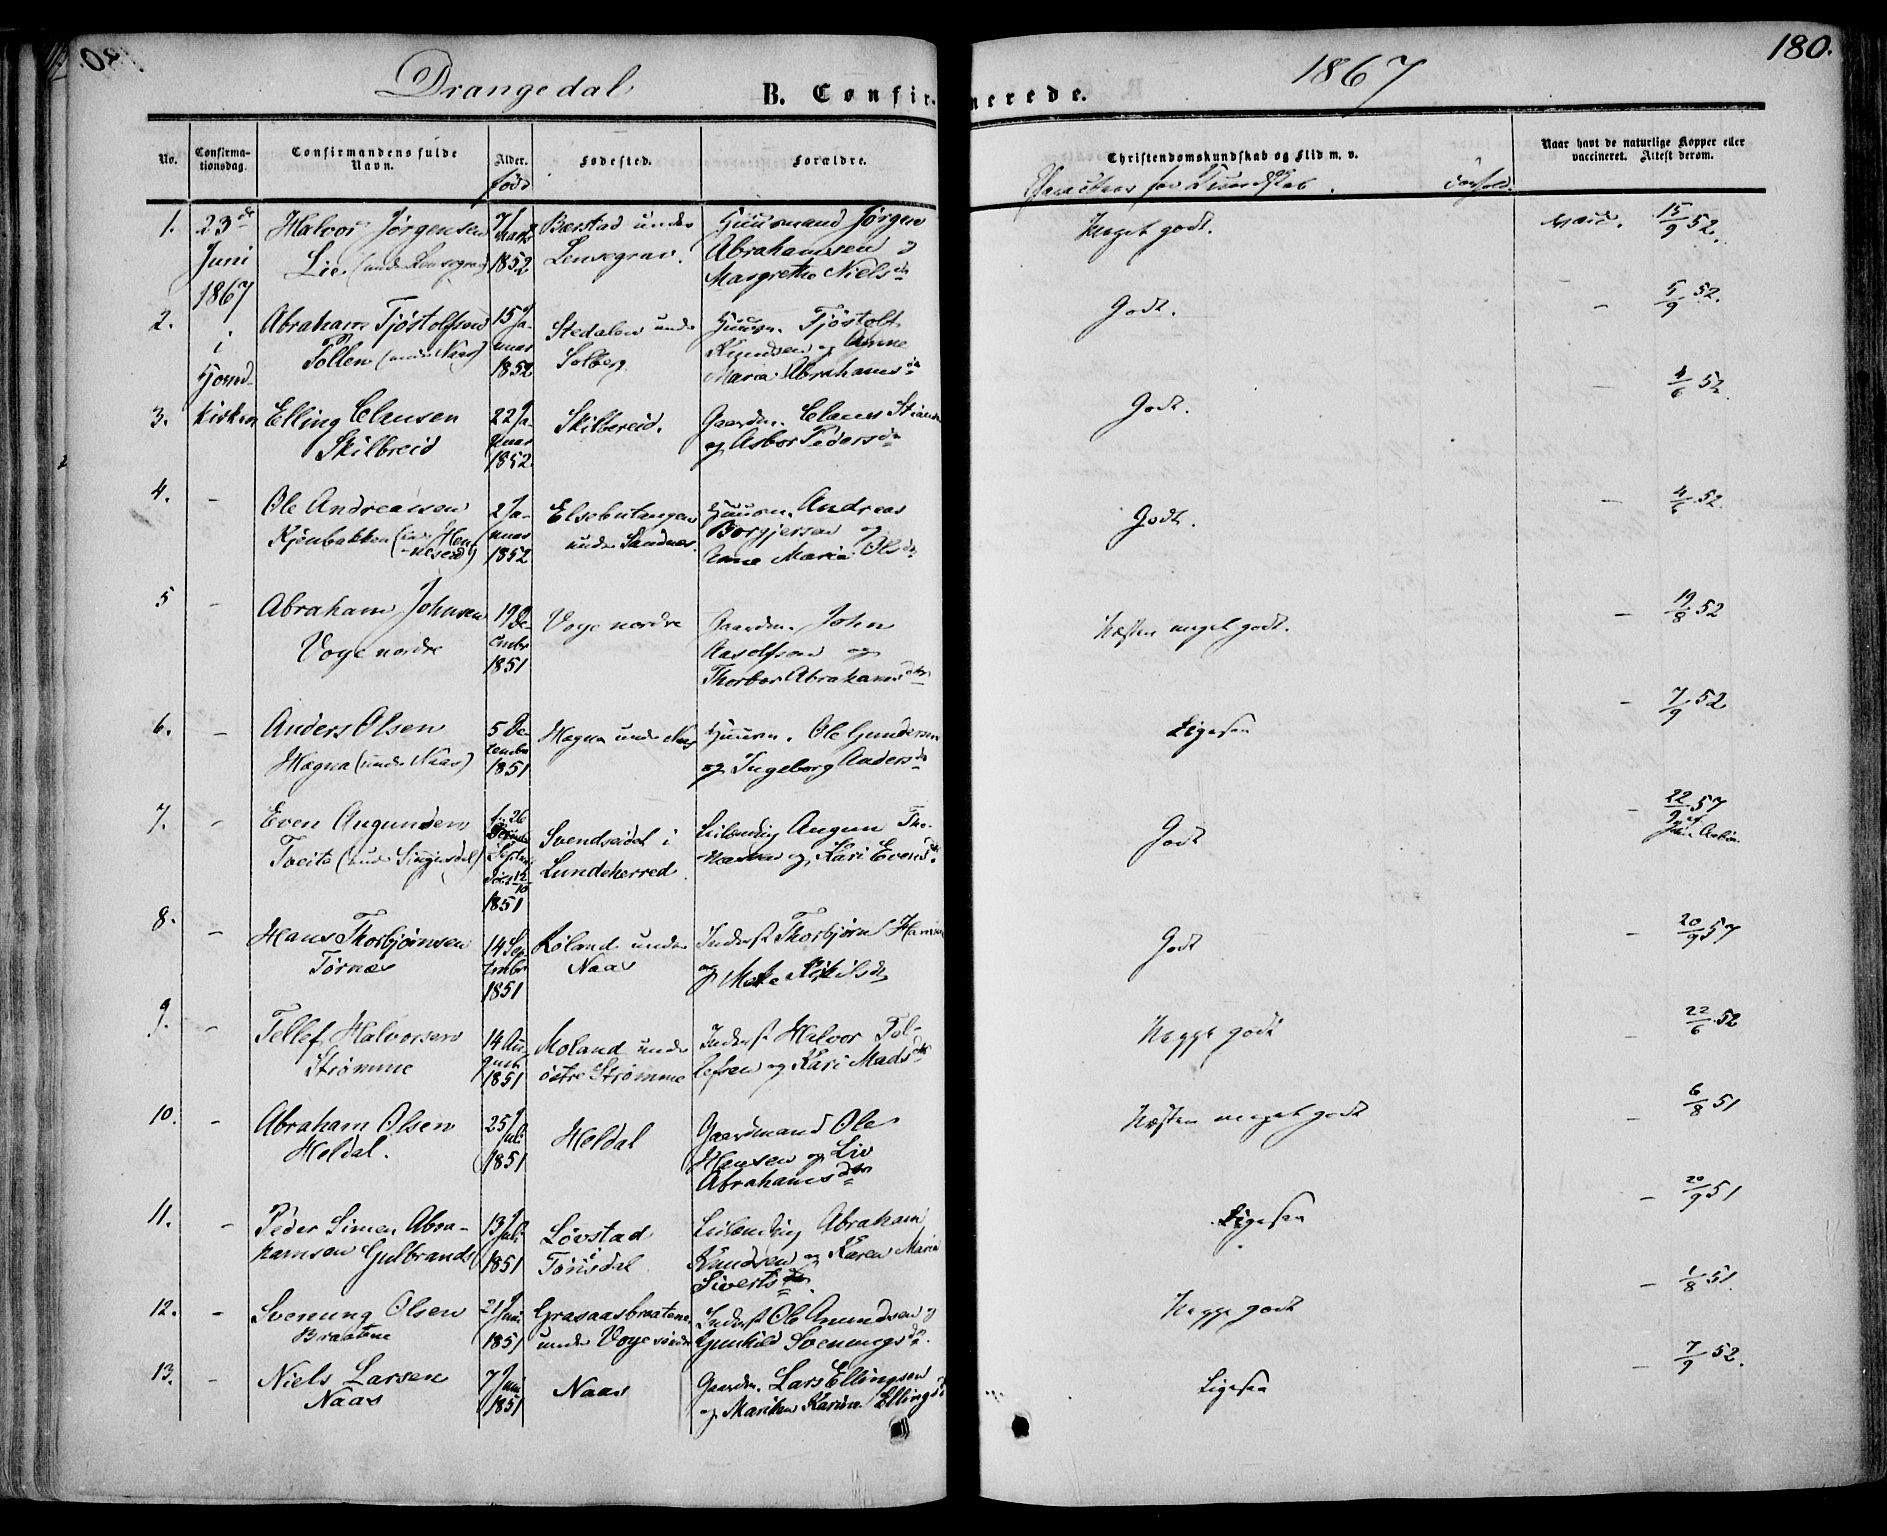 Drangedal
B. Confir-
merede.
1867
180.
No.
Confirma-
tionsdag.
Confirmandens fulde
Navn.
Alder.
født
Fødested.
Forældre.
Christendomskundskab og Flid m. v.
Naar havt de naturlige Kopper eller
vaccineret. Attest derom.
Karakter for Kundskab.
1.
23de
Juni
1867
i
Hoved-
kirken
Halvor Jørgensen
Lie
7 Marts
1852
Børstad under
Lensegrav.
Huusmand Jørgen
Abrahamsen og
Margrethe Nielsdr
Meget godt.
15/9 52.
2.
Abraham Tjøstolfsen
Tollen (under Naas)
15 Ja-
nuar
1852
Stedalen under
Solberg
Huusm. Tjøstolf
Knudsen og Anne
Maria Abrahamsdr
Godt.
– 5/9 52.
3.
Elling Clausen
Skilbreid
22 Ja-
nuar
1852
Skilbereid.
Gaardm. Claus
og Asbor Pedersdr
Godt.
4/6 52.
4.
–
Ole Andreasen
Kjenbakken
2 Ja-
nuar
1852
Elsebutangen
under Sandnes
Huusm. Andreas
Borgjersen og
Anne Maria Olsdr
Godt.
– 4/6 52.
5
–
Abraham Johnsen
Voje nordre
19 De-
cembr
1851
Voje nordre
Gaardm. John
Aasolfsen og
Thorbor Abrahamsdtr
Næsten meget godt.
– 19/8 52
6.
–
Anders Olsen
Høgna (under Naas)
5 De-
zembr
1851
Høgna under Naas
Huusm. Ole Gundersen
og Ingeborg Andersdr
Ligesaa
– 7/9 52
7.
–
Even Augundsen
Tveita
1851
Svendseidal i
Lundeherred.
Leilending Augun Tho-
og Kari Evensdtr
Godt
– 22/9 57
8.
–
Hans Thorbjørnsen
Tørnes
14 Sep-
tembr
1851
Røland under
Naas
Inderst Thorbjørn Hansen
og
Godt
– 20/9 57
9.
–
Tellef Halvorsen
Strømme
14 Au-
gust
1851
Moland under
østre Strømme
Inderst Halvor Tol-
lefsen og Kari Madsdtr
Begge godt
– 22/6 52
10.
–
Abraham Olsen
Heldal.
25 Juli
1851
Heldal
Gaardmand Ole
Hansen og Liv
Abrahamsdtr
Næsten meget godt
– 6/8 51
11.
–
Peder Simen Abra-
hamsen Gulbrands
13 Juli
1851
Løvstad
i
Tørisdal
Leilending Abraham
Knudsen og Karen Maria
Sivertsdr.
Ligesaa
– 20/9 51
12.
–
Svenung Olsen
Braatene
21 Juni
1851
Grasaasbraatene
under Voje søndre
Inderst Ole Amundsen og
Gunhild Svenungsdr.
Begge godt
– 1/8 51.
13.
–
Niels Larsen
Naas
7 Juni
1851
Naas
Gaardm. Lars Ellingsen
og Mariken Karine Ellingsdr
Ligesaa
– 7/9 52.